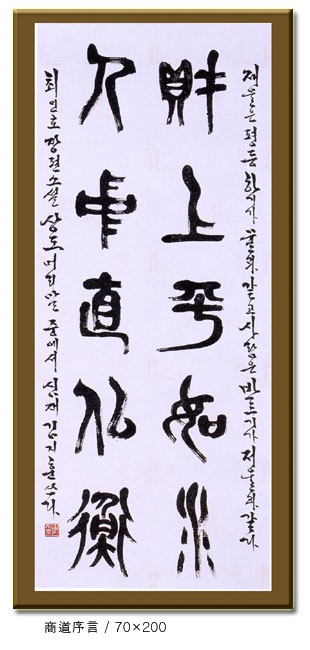 재물은 평등 하기가 물과 같고 사람은 바르기가 저울과 같다
財上平如水
人中直似衡
최인호 장편소설 상도 머리말 중에서 심재 김지훈 쓰다
商道序言 / 70×200